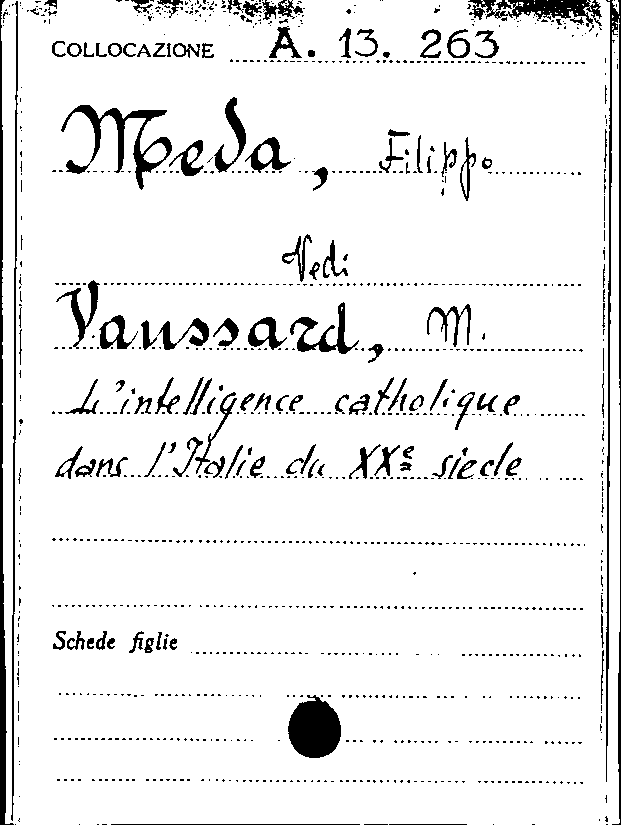 COLLOCAZIONE A. 13. 263
Meda, Filippo
Vedi
Vaussard, M.
L'intelligence catholique
dans l'Italie du XXe siecle
Schede figlie